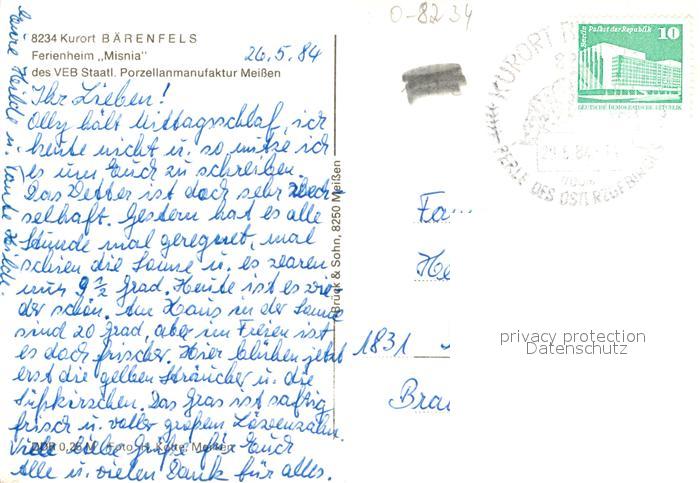 8234 Kurort BÄRENFELS
Ferienheim „Misnia"
des VEB Staatl. Porzellanmanufaktur Meißen
26.5.84
Ihr Lieben!
Olly hält Mittagsschlaf, ich
heute nicht u. so nutze ich
es um Euch zu schreiben.
Das Wetter ist doch sehr wech-
selhaft. Gestern hat es alle
Stunde mal geregnet, mal
schien die Sonne u. es waren
nur 9 ½ Grad. Heute ist es wie-
der schön. Am Haus in der Sonne
sind 20 Grad, aber im Freien ist
es doch frischer. Hier blühen jetzt
erst die gelben Sträucher u. die
Süßkirschen. Das Gras ist saftig
frisch u. voller großem Löwenzahn.
Viele liebe Grüße für Euch
Alle u. vielen Dank für alles.
Eure Heilde u. Tante
DDR 0,25 M Foto: H. Kotte, Meißen
Brück & Sohn, 8250 Meißen
O-8234
Berlin Palast der Republik
10
DEUTSCHE DEMOKRATISCHE REPUBLIK
KURORT
PERLE DES OSTERZGEBIRGES
Fa
He
1831
Bra
privacy protection
Datenschutz